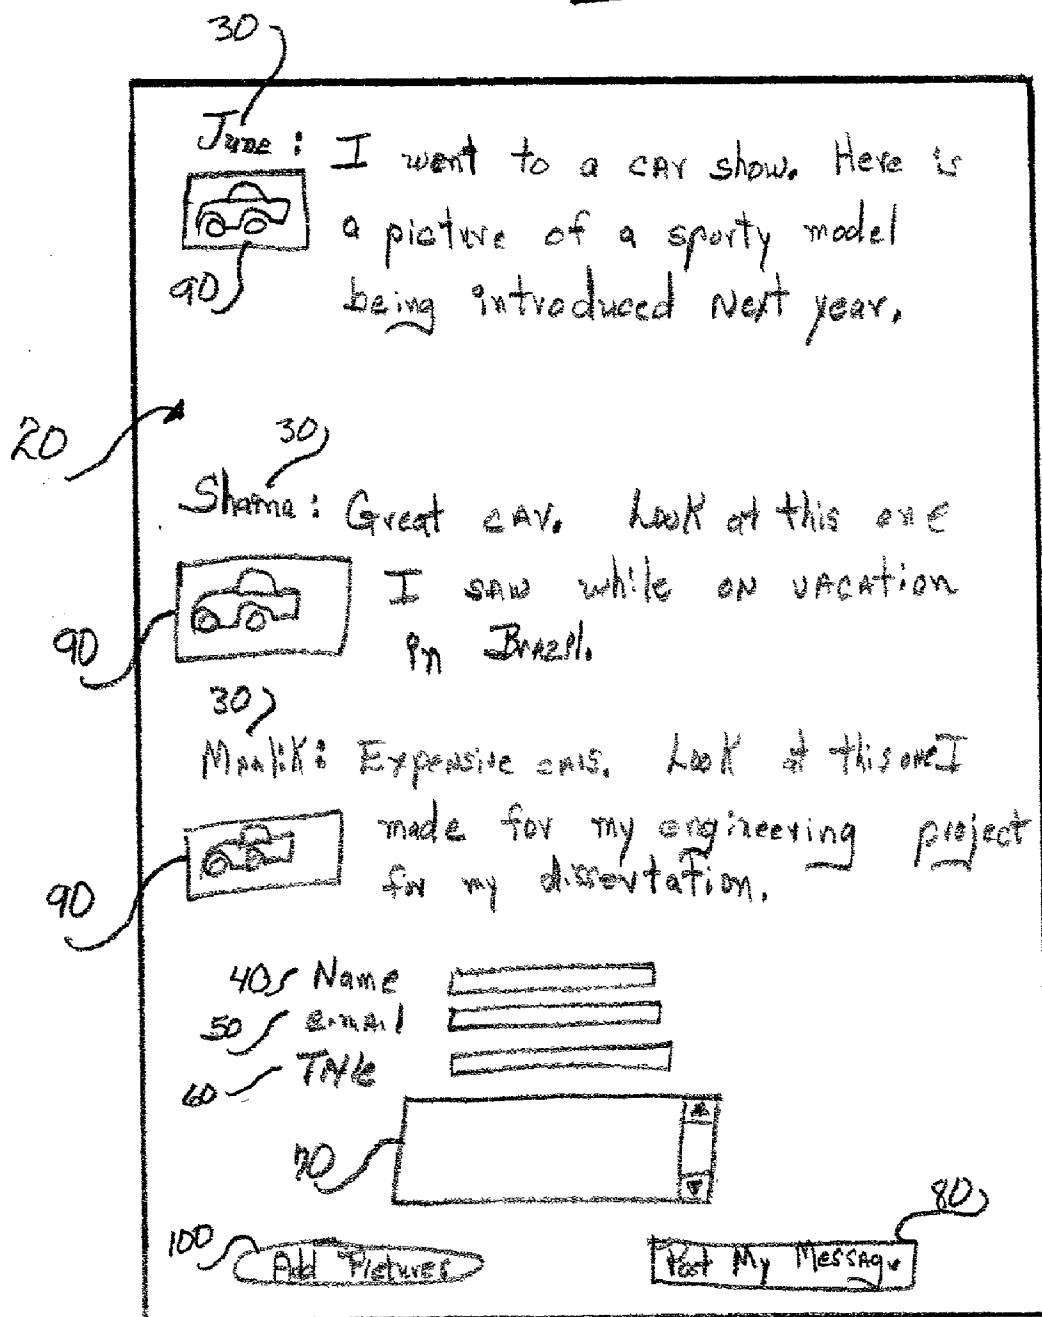 30
June: I went to a car show. Here is
a picture of a sporty model
90
being introduced Next year.
20
30
Shama: Great car. Look at this one
I saw while on vacation
90
in Brazil.
30
Maalik: Expensive cars. Look at this one I
made for my engineering project
90
for my dissertation.
40 Name
50 e-mail
60 Title
70
80
100
Add Pictures
Post My Message